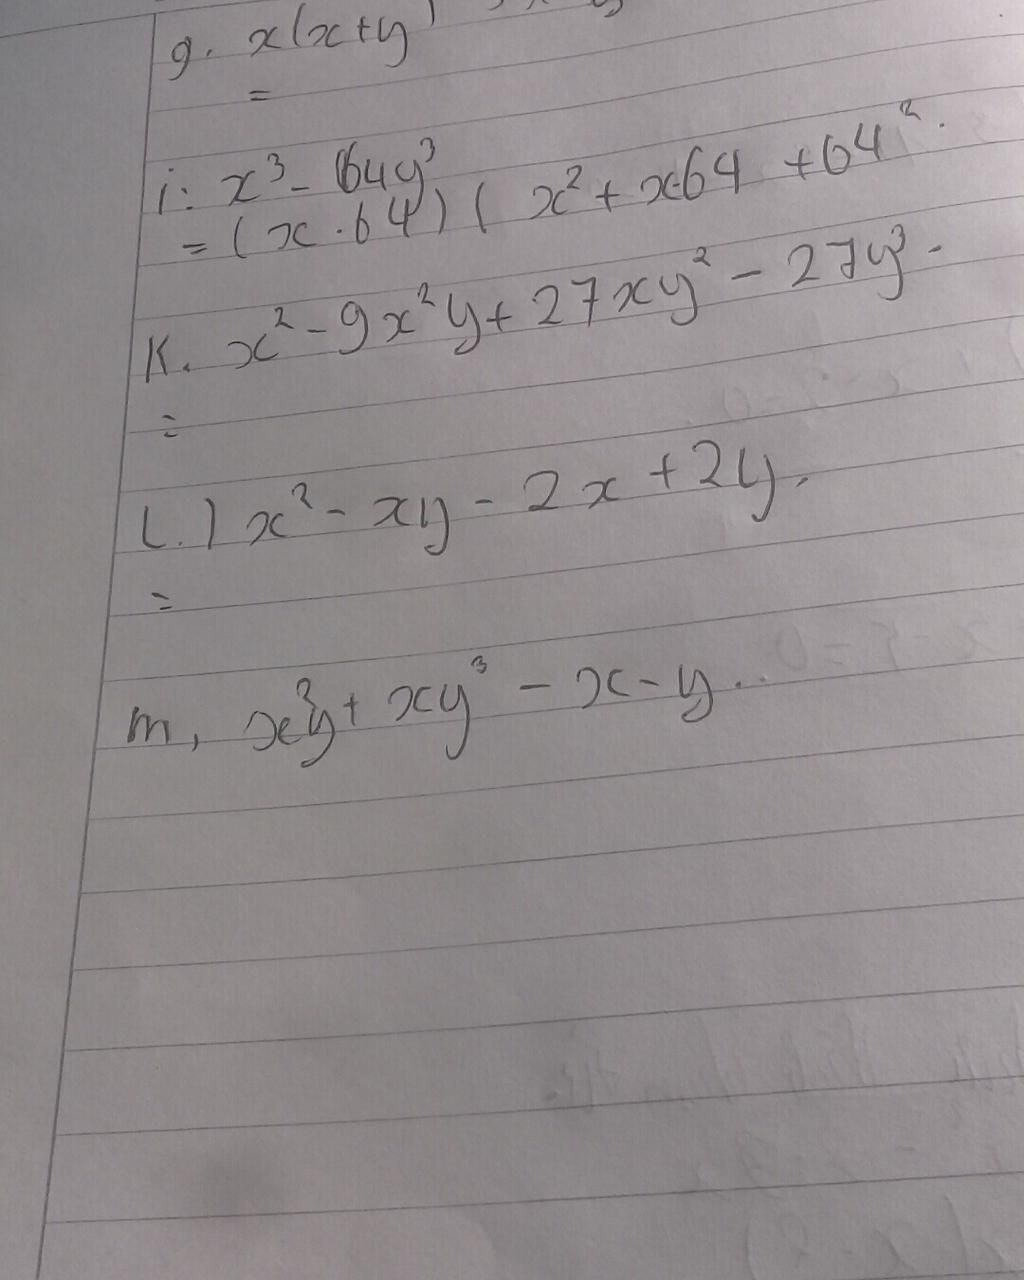 g. x(x+y)
=
i: x³ - 64y³
= (x.64)(x² + x64 + 64².
K. x² - 9x²y + 27xy² - 27y³.
=
L.) x² - xy - 2x + 2y.
=
m, x³y + xy³ - x - y..